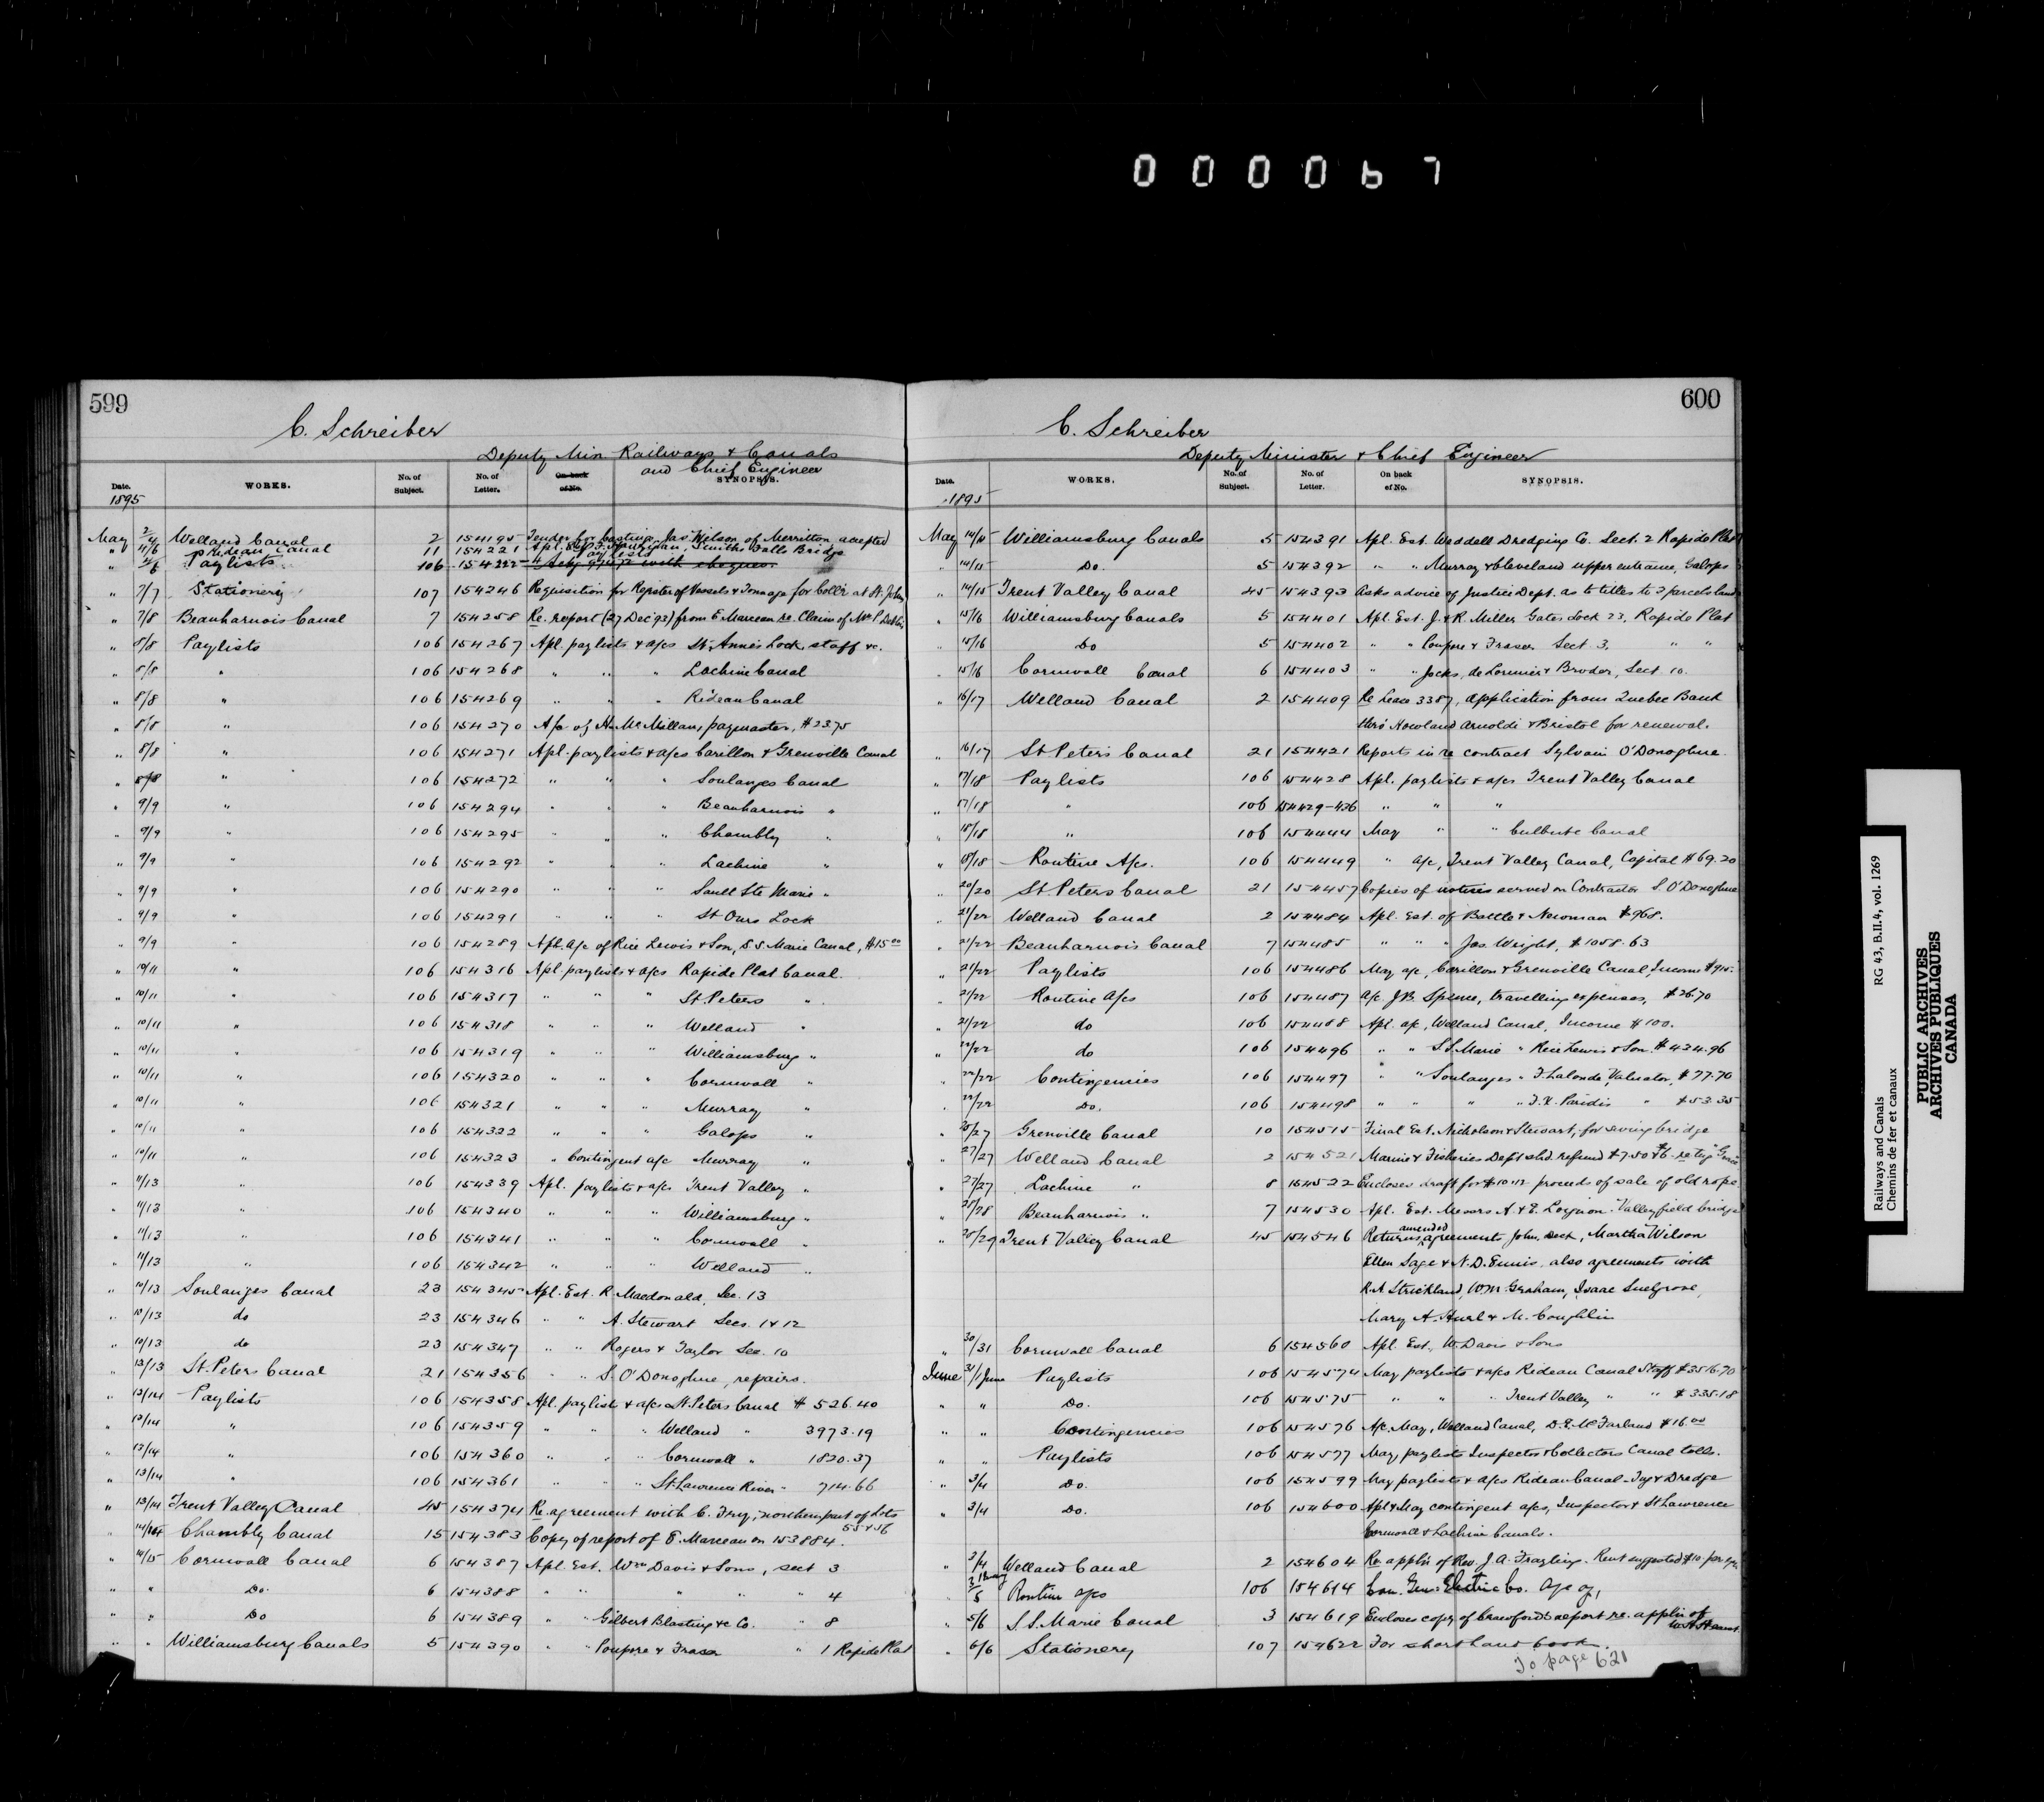 000067
599
C. Schreiber
Deputy Min. Railways & Canals
and Chief Engineer
Date. WORKS. No. of Subject. No. of Letter. On back of No. SYNOPSIS.
1895
May 2/4 Welland Canal 2 154195 Tender for castings Jas. Wilson of Merritton, accepted
" 4/6 Rideau Canal 11 154221 Apl. Est. Smiths Falls Bridge
" 4/6 Paylists 106 154222 Paylists with cheques.
" 7/7 Stationery 107 154246 Requisition for Register of Vessels & Tonnage for Coll'r at St. Johns
" 7/8 Beauharnois Canal 7 154258 Re. report (27 Dec '93) from E Marceau re. Claim of
" 8/8 Paylists 106 154267 Apl. paylists & a/cs St. Anne's Lock, staff &c.
" 8/8 " 106 154268 " " " Lachine Canal
" 8/8 " 106 154269 " " " Rideau Canal
" 8/8 " 106 154270 A/c of H. McMillan, paymaster, $23.75
" 8/8 " 106 154271 Apl. paylists & a/cs Carillon & Grenville Canal
" 8/8 " 106 154272 " " " Soulanges Canal
" 9/9 " 106 154294 " " " Beauharnois "
" 9/9 " 106 154295 " " " Chambly "
" 9/9 " 106 154292 " " " Lachine "
" 9/9 " 106 154290 " " " Sault Ste Marie "
" 9/9 " 106 154291 " " " St Ours Lock
" 9/9 " 106 154289 Apl. a/c of Rice Lewis & Son, S.S. Marie Canal, $15.00
" 10/11 " 106 154316 Apl. paylists & a/cs Rapide Plat Canal.
" 10/11 " 106 154317 " " " St. Peters "
" 10/11 " 106 154318 " " " Welland "
" 10/11 " 106 154319 " " " Williamsburg "
" 10/11 " 106 154320 " " " Cornwall "
" 10/11 " 106 154321 " " " Murray "
" 10/11 " 106 154322 " " " Galops "
" 10/11 " 106 154323 " Contingent a/c Murray "
" 11/13 " 106 154339 Apl. paylists & a/cs Trent Valley "
" 11/13 " 106 154340 " " " Williamsburg "
" 11/13 " 106 154341 " " " Cornwall "
" 11/13 " 106 154342 " " " Welland "
" 10/13 Soulanges Canal 23 154345 Apl. Est. R. Macdonald, Sec. 13
" 10/13 do 23 154346 " " A. Stewart Secs. 1 & 12
" 10/13 do 23 154347 " " Rogers & Taylor Sec. 10
" 13/13 St. Peters Canal 21 154356 " " S. O'Donoghue, repairs.
" 13/14 Paylists 106 154358 Apl. paylist & a/cs St. Peters Canal $ 526.40
" 13/14 " 106 154359 " " " Welland " 3973.19
" 13/14 " 106 154360 " " " Cornwall " 1820.37
" 13/14 " 106 154361 " " " St. Lawrence River " 714.66
" 13/14 Trent Valley Canal 45 154374 Re. agreement with C. Fry, northern part of Lots 55 & 56
" 14/14 Chambly Canal 15 154383 Copy of report of E. Marceau on 153884.
" 14/15 Cornwall Canal 6 154387 Apl. Est. Wm Davis & Sons, sect 3
" " Do. 6 154388 " " " " 4
" " Do 6 154389 " " Gilbert Blasting &c Co. " 8
" " Williamsburg Canals 5 154390 " " Poupore & Fraser " 1 Rapide Plat
600
C. Schreiber
Deputy Minister & Chief Engineer
Date. WORKS. No. of Subject. No. of Letter. On back of No. SYNOPSIS.
1895
May 14/15 Williamsburg Canals 5 154391 Apl. Est. Weddell Dredging Co. Sect. 2 Rapide Plat
" 14/15 Do. 5 154392 " " Murray & Cleveland upper entrance, Galops
" 14/15 Trent Valley Canal 45 154393 Asks advice of Justice Dept. as to titles to 3 parcels land
" 15/16 Williamsburg Canals 5 154401 Apl. Est. J. & R. Miller Gates Lock 23, Rapide Plat
" 15/16 Do 5 154402 " " Poupore & Fraser Sect. 3, " "
" 15/16 Cornwall Canal 6 154403 " " Jocks, de Lorimier & Broder, Sect. 10.
" 16/17 Welland Canal 2 154409 Re Lease 3387, application from Quebec Bank
thro' Howland Arnoldi & Bristol for renewal.
" 16/17 St Peters Canal 21 154421 Reports in re contract Sylvain O'Donoghue.
" 17/18 Paylists 106 154428 Apl. paylists & a/cs Trent Valley Canal
" 17/18 " 106 154429-436 " " "
" 18/18 " 106 154444 May " " Culbute Canal
" 18/18 Routine A/cs. 106 154449 " a/c, Trent Valley Canal, Capital $69.20
" 20/20 St Peters Canal 21 154457 Copies of notices served on Contractor S. O'Donoghue
" 21/22 Welland Canal 2 154484 Apl. Est. of Battle & Newman $968.
" 21/22 Beauharnois Canal 7 154485 " " " Jas. Wright, $1058.63
" 21/22 Paylists 106 154486 May a/c, Carillon & Grenville Canal, Income
" 21/22 Routine A/cs 106 154487 a/c. J.B. Spence, travelling expenses, $26.70
" 21/22 do 106 154488 Apl. a/c, Welland Canal, Income $100.
" 22/22 do 106 154496 " " S.S. Marie " Rice Lewis & Son. $434.96
" 22/22 Contingencies 106 154497 " " Soulanges " F. Lalonde, Valuator, $77.70
" 22/22 Do. 106 154498 " " " " Paridis " $53.35
" 25/27 Grenville Canal 10 154515 Final Est. Nicholson & Stewart, for swing bridge
" 27/27 Welland Canal 2 154521 Marine & Fisheries Dept shd. refund $7.50
" 27/27 Lachine " 8 154522 Encloses draft for $10.12 proceeds of sale of old rope
" 28/28 Beauharnois " 7 154530 Apl. Est. Messrs A. & E. Loignon. Valleyfield bridge
" 28/29 Trent Valley Canal 45 154546 Returns amended agreements John, Martha Wilson
Ellen Sage & N.D. Ennis, also agreements with
R.A. Strickland, Wm. Graham, Isaac Snelgrove,
Mary A. Hurl & M. Coughlin
" 30/31 Cornwall Canal 6 154560 Apl. Est., W. Davis & Sons
June 31/1 June Paylists 106 154574 May paylists & a/cs Rideau Canal Staff $3516.70
" " Do. 106 154575 " " " Trent Valley " " $335.18
" " Contingencies 106 154576 A/c. May, Welland Canal, D.E. McFarland $16.00
" " Paylists 106 154577 May, paylists Inspector & Collectors Canal tolls.
" 3/4 Do. 106 154599 May paylists & a/cs Rideau Canal - Tug & Dredge
" 3/4 Do. 106 154600 Apl & May contingent a/cs, Inspector & St Lawrence
Cornwall & Lachine Canals.
" 3/4 Welland Canal 2 154604 Re. appl'n of Rev. J. A. Rent suggested $10. per
" 5 Routine a/cs 106 154614 Can. Gen. Electric Co. a/c of,
" 5/6 S.S. Marie Canal 3 154619 Encloses copy of Crawford's report re. appl'n of
" 6/6 Stationery 107 154622 For shorthand book.
To page 621
Railways and Canals RG 43, B.II.4, vol. 1269
Chemins de fer et canaux
PUBLIC ARCHIVES
ARCHIVES PUBLIQUES
CANADA